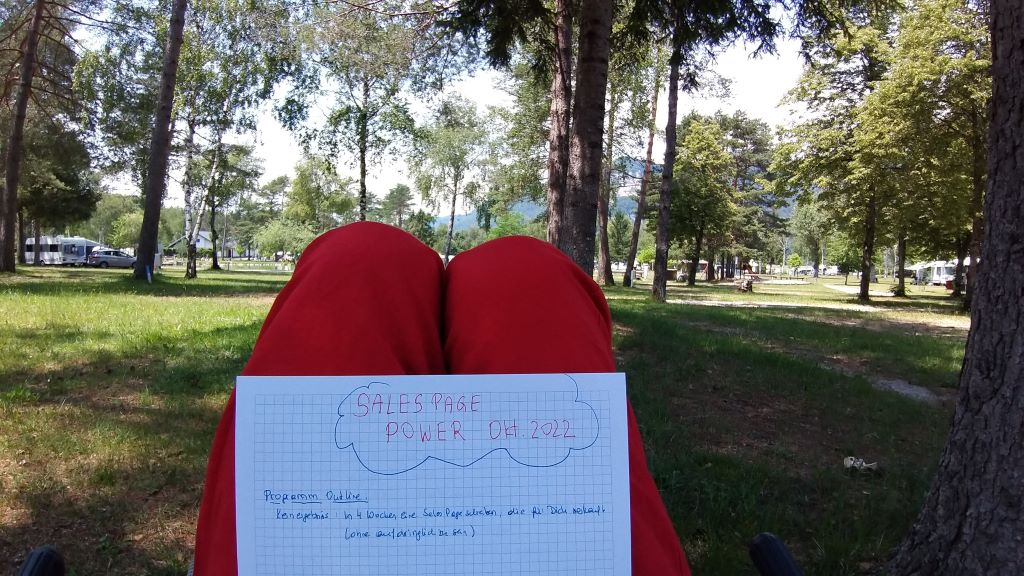 SALES PAGE
POWER Okt. 2022
Programm Outline:
Kernergebnis: In 4 Wochen eine Sales Page schreiben, die für Dich verkauft
(ohne aufdringlich zu sein)